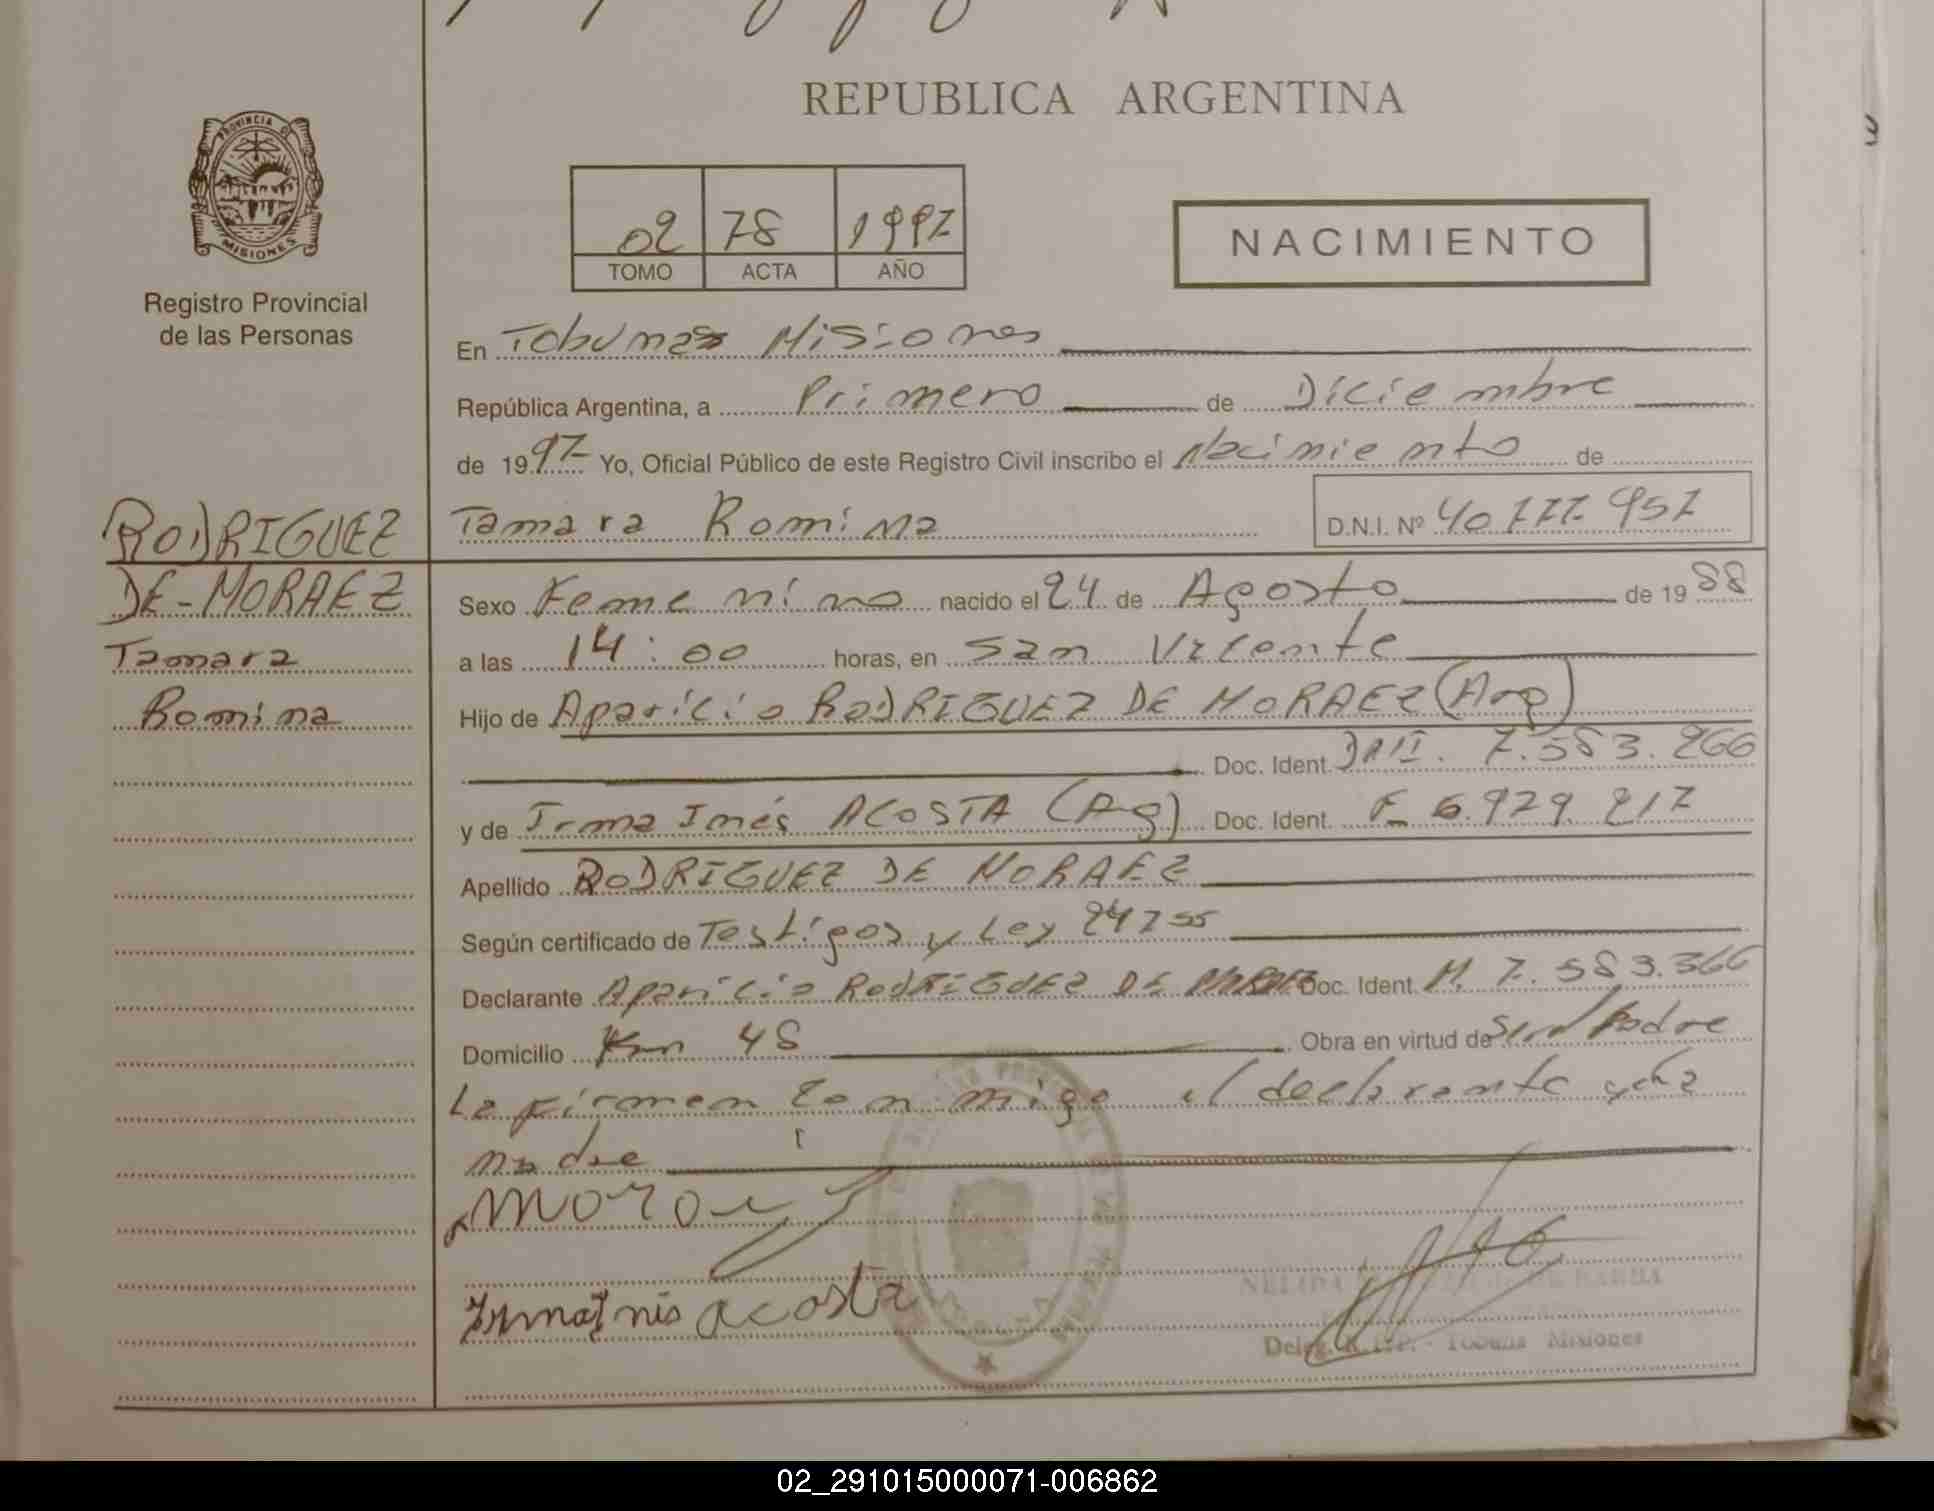 REPUBLICA ARGENTINA
PROVINCIA DE
MISIONES
Registro Provincial
de las Personas
02 78 1997
TOMO ACTA AÑO
NACIMIENTO
En Tobunas Misiones
República Argentina, a Primero de Diciembre
de 1997 Yo, Oficial Público de este Registro Civil inscribo el Nacimiento de
RODRIGUEZ
DE-MORAEZ
Tamara
Romina
Tamara Romina D.N.I. Nº 40.777.957
Sexo Femenino nacido el 24 de Agosto de 1988
a las 14:00 horas, en San Vicente
Hijo de Aparicio RODRIGUEZ DE MORAEZ (Arg)
Doc. Ident. DNI. 7.583.266
y de Irma Inés ACOSTA (Ag) Doc. Ident. F 6.929.217
Apellido RODRIGUEZ DE MORAEZ
Según certificado de Testigos y Ley 24755
Declarante Aparicio RODRIGUEZ DE Doc. Ident. M. 7.583.366
Domicilio Km 48 Obra en virtud de Ser Padre
La firmen conmigo el declarante y la
madre
Irma Inés acosta
NELIDA DE BARBA
Deleg. R.P.P. - Tobuna Misiones
02_291015000071-006862